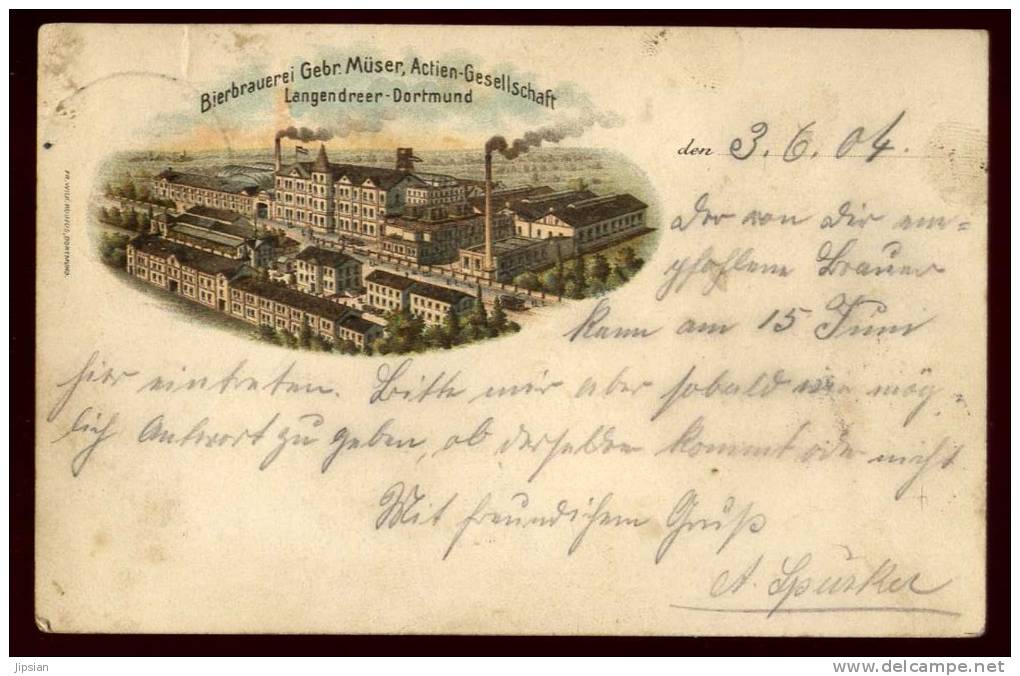 Bierbrauerei Gebr. Müser, Actien-Gesellschaft
Langendreer-Dortmund
den 3. 6. 04.
der von Dir em=
pfohlene Brauer
kann am 15 Juni
hier eintreten. Bitte mir aber sobald wie mög=
lich Antwort zu geben, ob derselbe kommt oder nicht
Mit freundlichem Gruß
Jipsian
www.delcampe.net